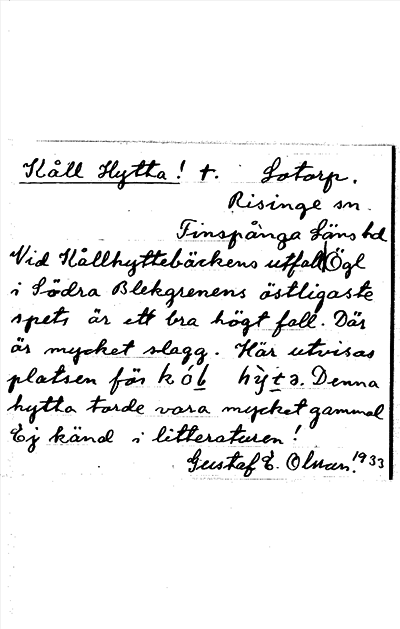 Kåll Hytta! t. Lotorp.
Risinge sn.
Finspånga Läns hd
Vid Kållhyttebäckens utfall Ögl
i Södra Blekgrenens östligaste
spets är ett bra högt fall. Där
är mycket slagg. Här utvisas
platsen för Denna
hytta torde vara mycket gammal
Ej känd i litteraturen!
Gustaf E. Olsson. 1933